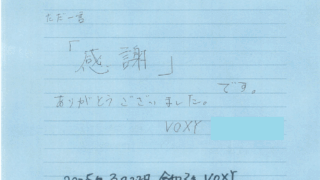 ただ一言
「感謝」
です。
ありがとうございました。
VOXY
VOXY